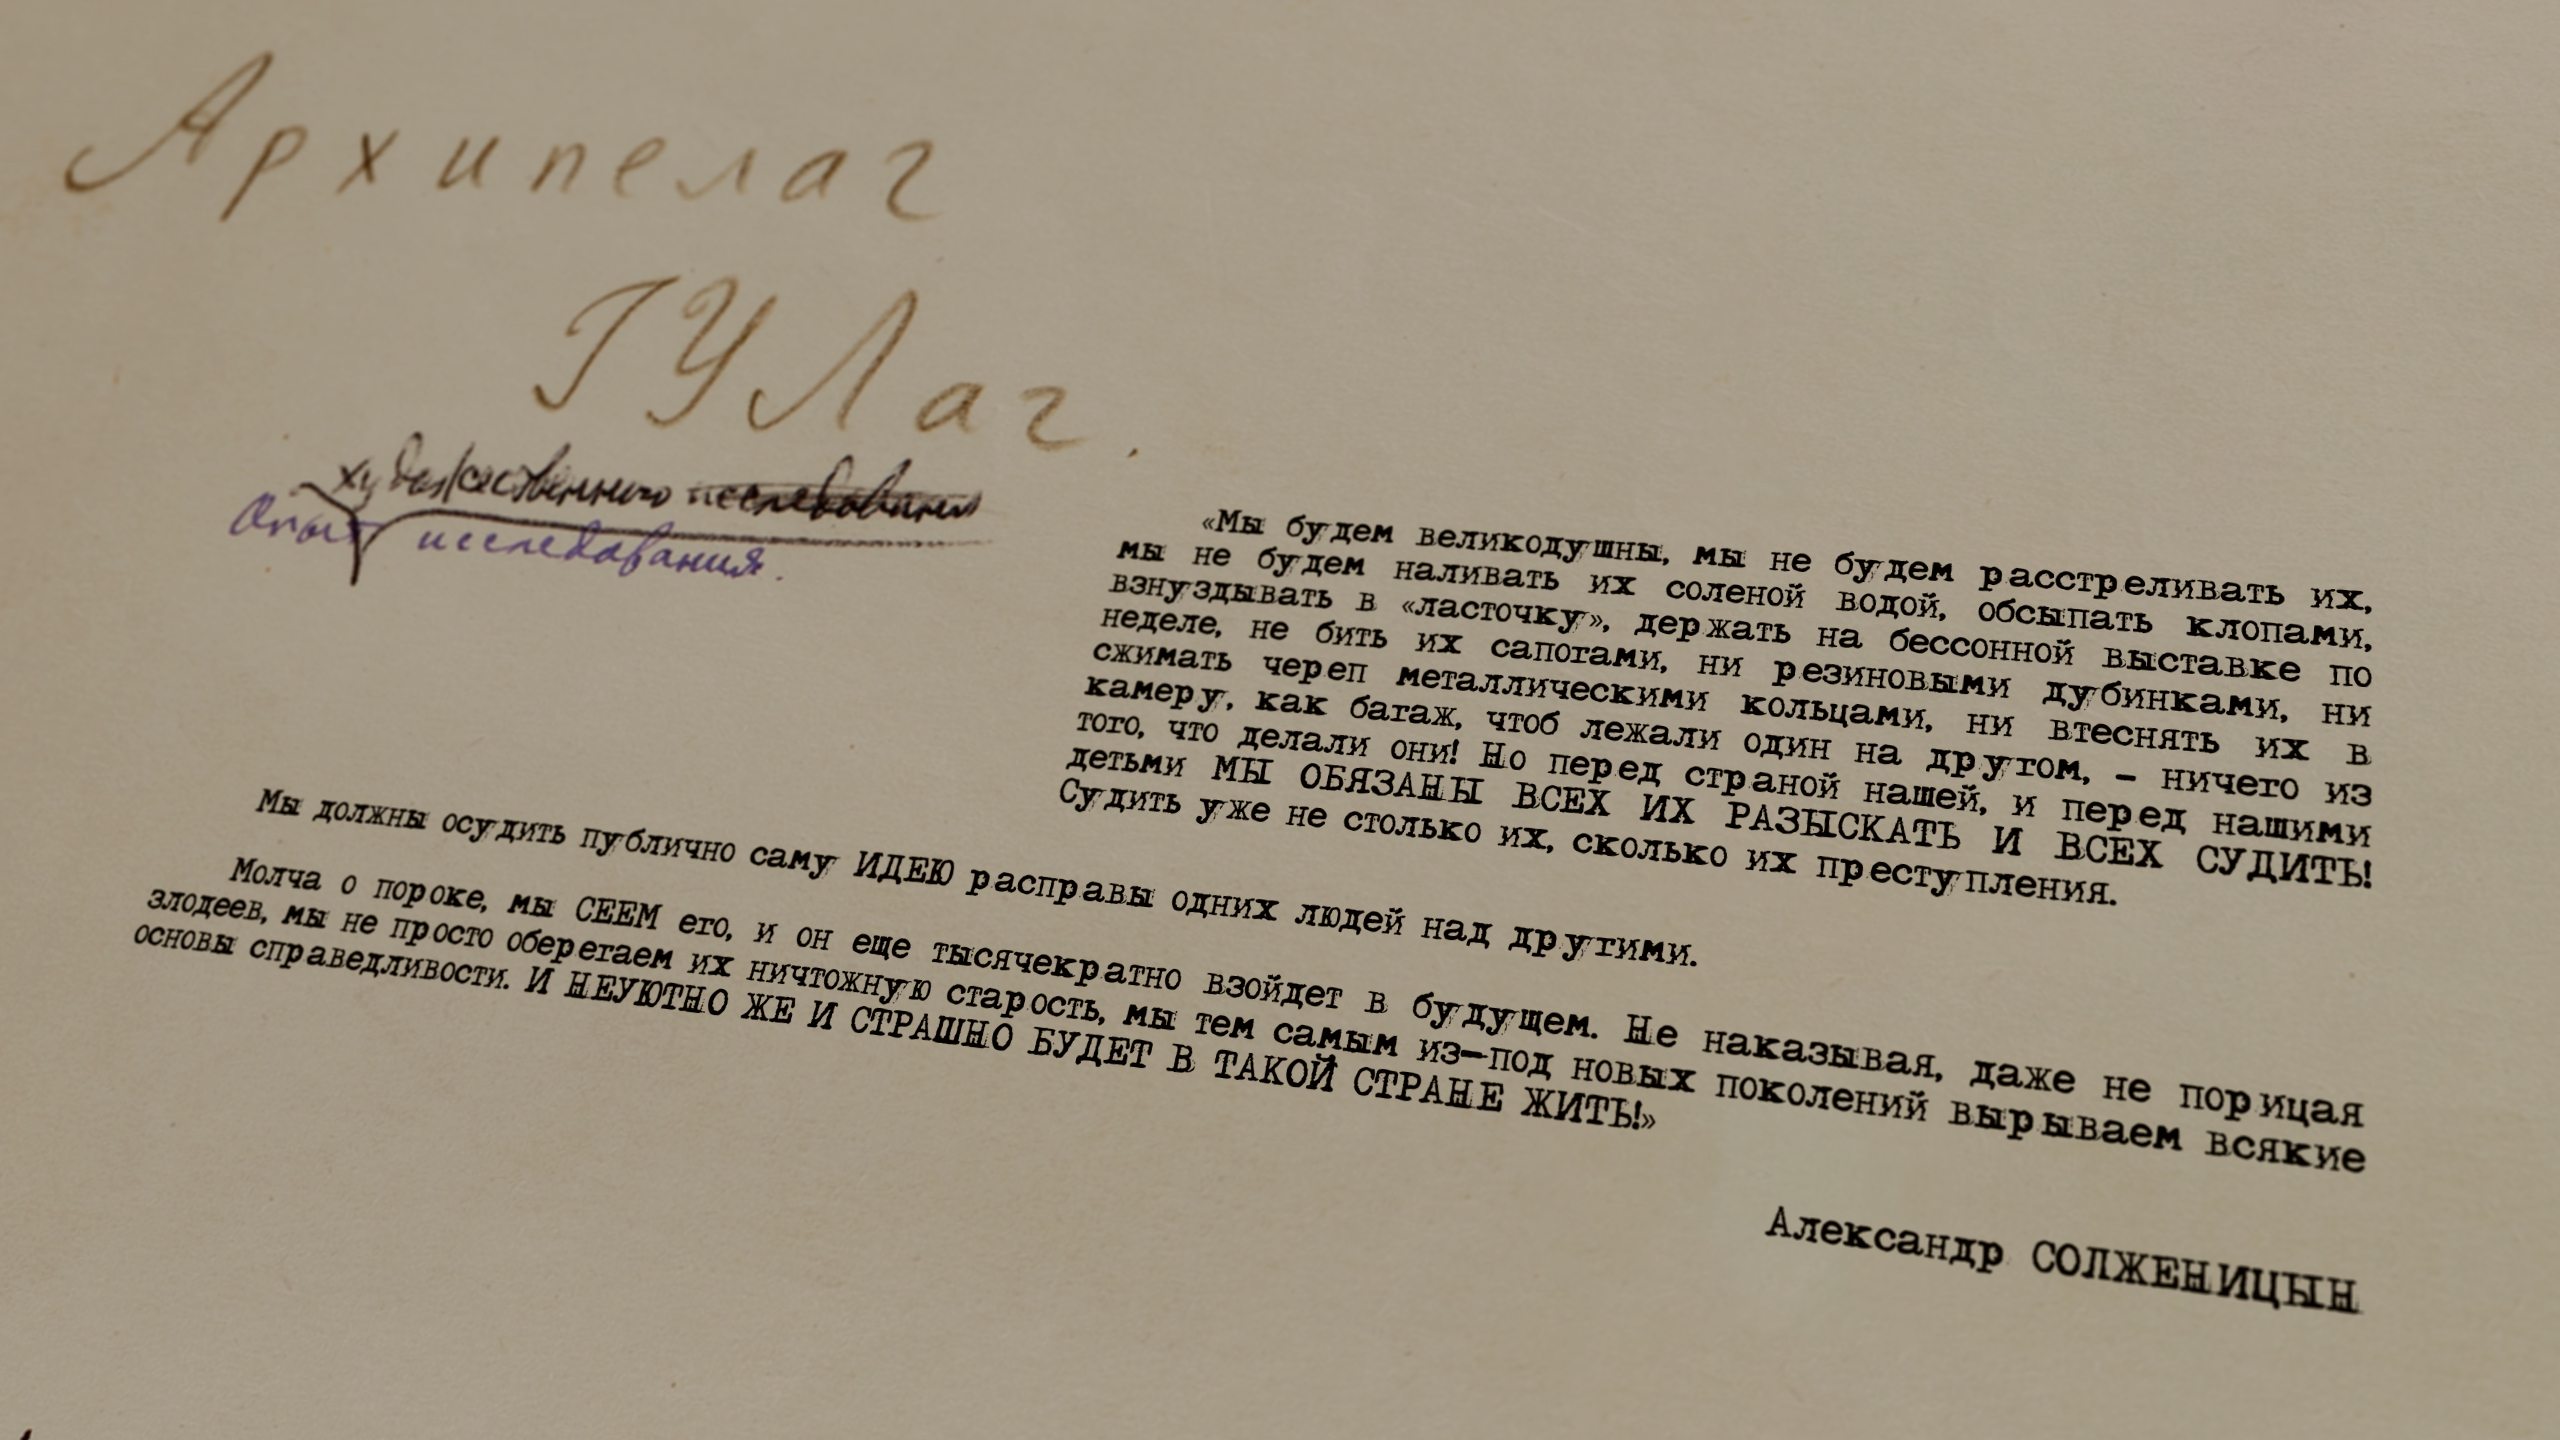 Архипелаг
ГУЛаг.
художественного исследования
Опыт исследования.
«Мы будем великодушны, мы не будем расстреливать их,
мы не будем наливать их соленой водой, обсыпать клопами,
взнуздывать в «ласточку», держать на бессонной выставке по
неделе, не бить их сапогами, ни резиновыми дубинками, ни
сжимать череп металлическими кольцами, ни втеснять их в
камеру, как багаж, чтоб лежали один на другом, – ничего из
того, что делали они! Но перед страной нашей, и перед нашими
детьми МЫ ОБЯЗАНЫ ВСЕХ ИХ РАЗЫСКАТЬ И ВСЕХ СУДИТЬ!
Судить уже не столько их, сколько их преступления.
Мы должны осудить публично саму ИДЕЮ расправы одних людей над другими.
Молча о пороке, мы СЕЕМ его, и он еще тысячекратно взойдет в будущем. Не наказывая, даже не порицая
злодеев, мы не просто оберегаем их ничтожную старость, мы тем самым из-под новых поколений вырываем всякие
основы справедливости. И НЕУЮТНО ЖЕ И СТРАШНО БУДЕТ В ТАКОЙ СТРАНЕ ЖИТЬ!»
Александр СОЛЖЕНИЦЫН